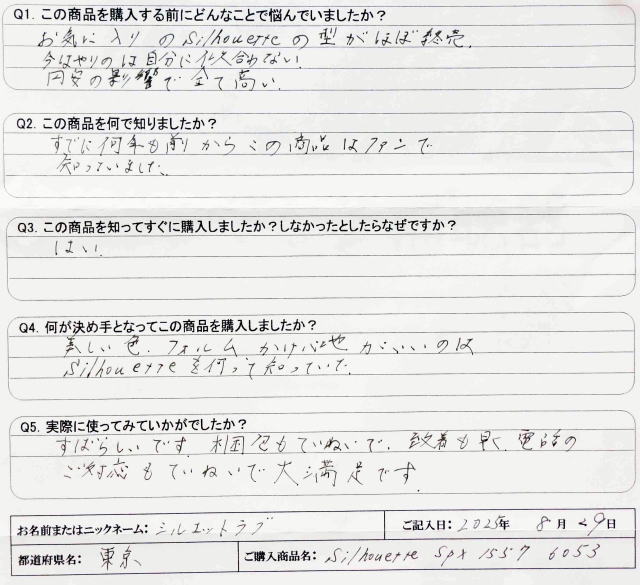 Q1. この商品を購入する前にどんなことで悩んでいましたか?
お気に入りのSilhouetteの型がほぼ終売。
今はやりのは自分に似合わない。
円安の影響で全て高い。
Q2. この商品を何で知りましたか?
すでに何年も前からこの商品はファンで
知っていました。
Q3. この商品を知ってすぐに購入しましたか?しなかったとしたらなぜですか?
はい
Q4. 何が決め手となってこの商品を購入しましたか?
美しい色、フォルム かけ心地がいいのは
Silhouetteを何って知っていた。
Q5. 実際に使ってみていかがでしたか?
すばらしいです。梱包もていねいで、到着も早く、電話の
ご対応もていねいで大満足です
お名前またはニックネーム: シルエットラブ
ご記入日: 2025年 8月 29日
都道府県名: 東京
ご購入商品名: Silhouette SPX 1557 6053